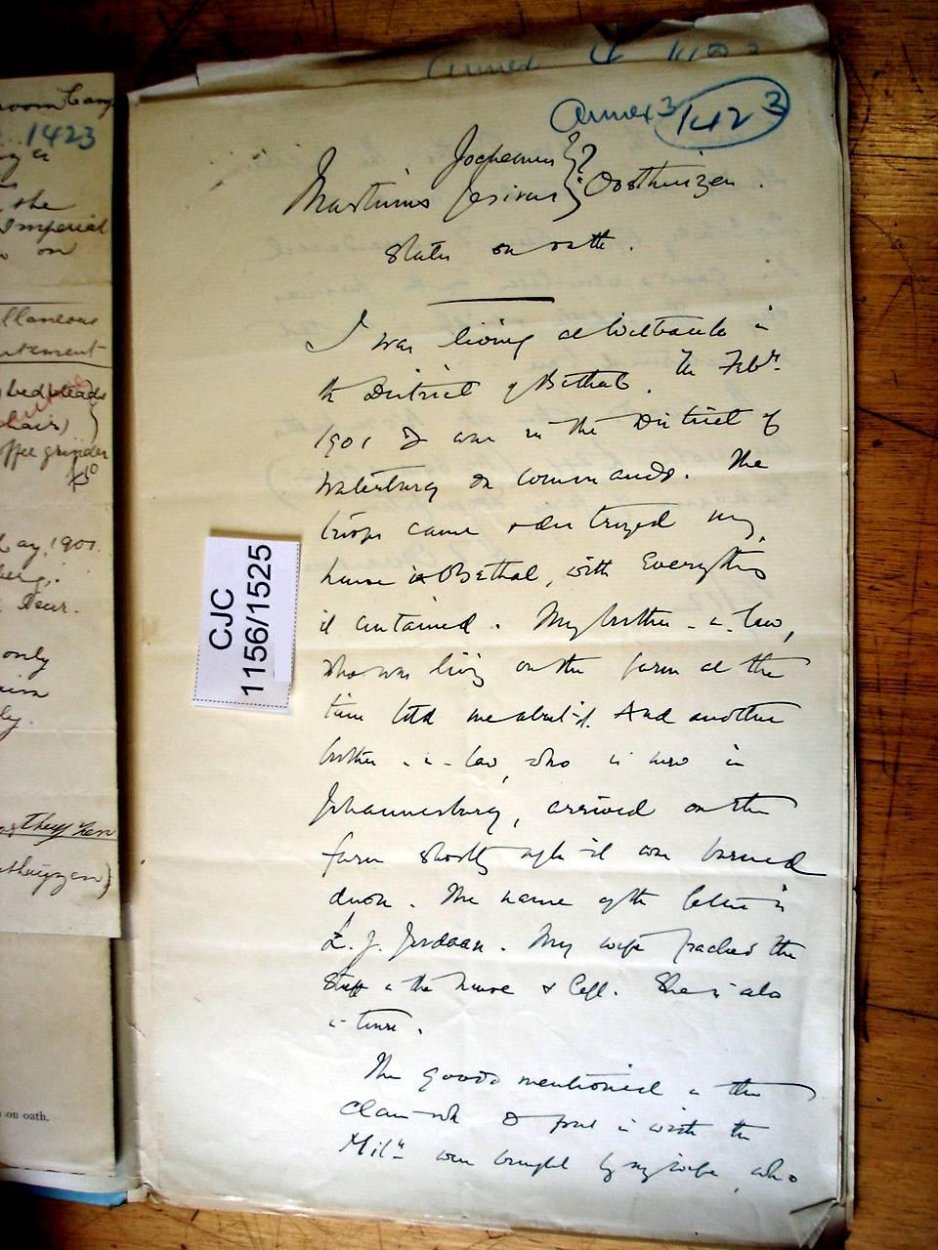 Annex 3 1423
Jochemus } ?
Martinus } Oosthuizen.
States on oath.
I was living at in
the District of Bethal. In Febr.
1901 I was in the District of
Waterberg on commando. The
troops came & destroyed my
house in Bethal, with everything
it contained. My brother-in-law,
who was living on the farm at the
time told me about it. And another
brother-in-law, who is now in
Johannesburg, arrived on the
farm shortly after it was burned
down. The name of the latter is
L. J. Jordaan. My wife packed the
stuff in the house & left. She is also
in town.
The goods mentioned in the
claim wh I put in with the
Mily were bought by my wife, who
CJC
1156/1525
room Camp
1423
the
Imperial
on
llaneous
tement
bedsteads
chairs)
coffee grinder
£10
May, 1901.
berg.
only
on oath.